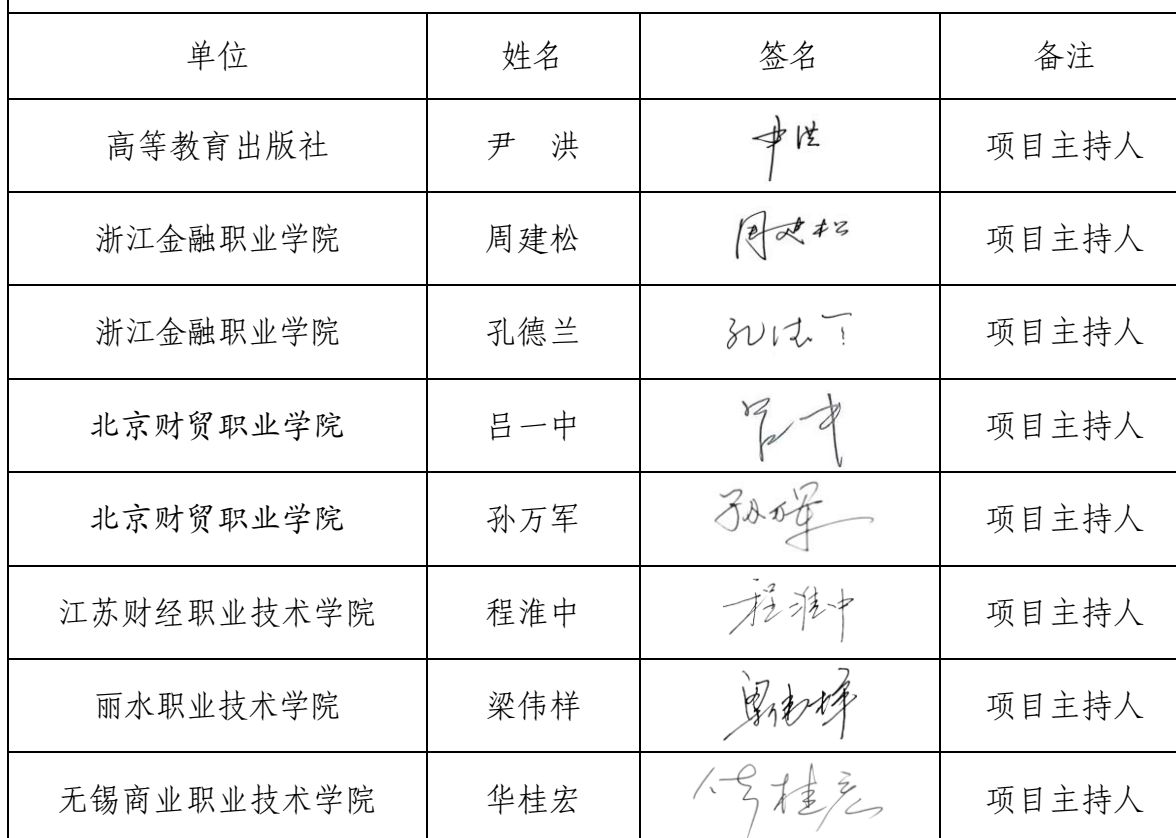 单位 姓名 签名 备注
高等教育出版社 尹 洪 尹洪 项目主持人
浙江金融职业学院 周建松 周建松 项目主持人
浙江金融职业学院 孔德兰 孔德兰 项目主持人
北京财贸职业学院 吕一中 吕一中 项目主持人
北京财贸职业学院 孙万军 孙万军 项目主持人
江苏财经职业技术学院 程淮中 程淮中 项目主持人
丽水职业技术学院 梁伟样 梁伟样 项目主持人
无锡商业职业技术学院 华桂宏 华桂宏 项目主持人